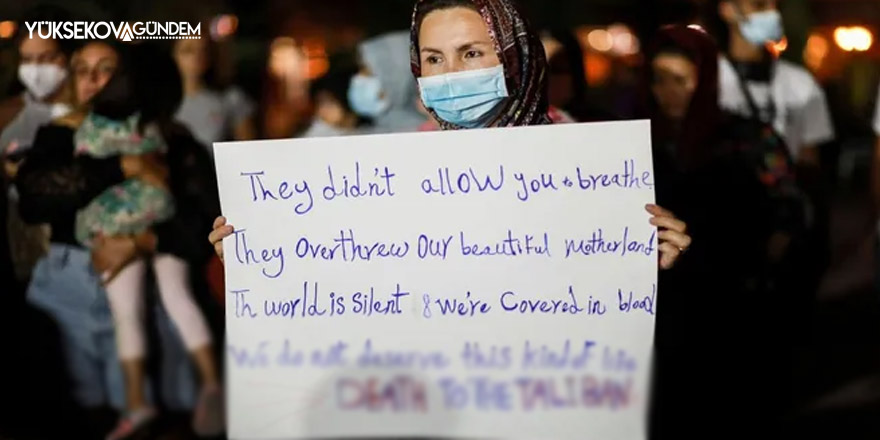 YÜKSEKOVAGÜNDEM
They didn't allow you to breathe
They Overthrew Our beautiful motherland
Th world is Silent & we're Covered in blood
We do not deserve this kind of life
DEATH TO THE TALIBAN